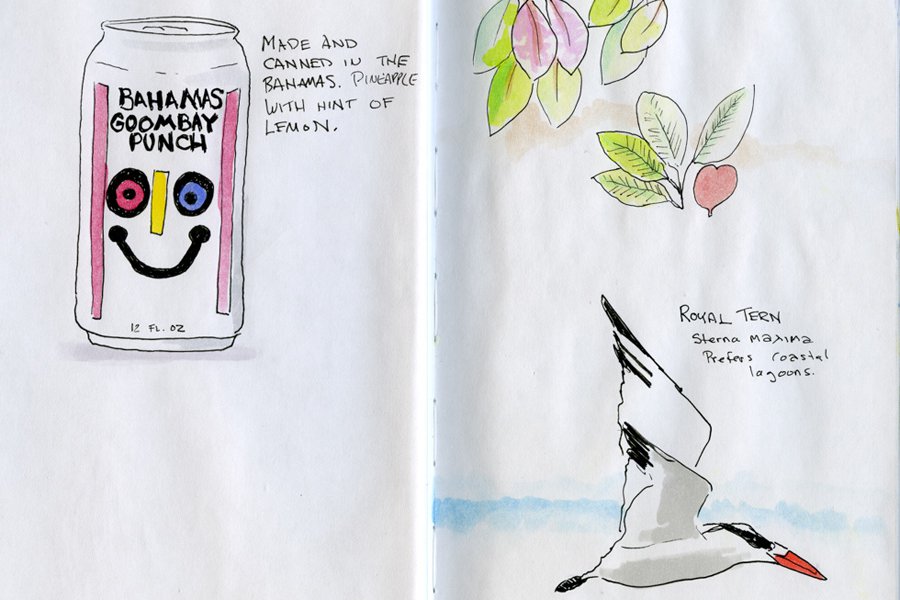 BAHAMAS
GOOMBAY
PUNCH
12 FL. OZ
MADE AND
CANNED IN THE
BAHAMAS. PINEAPPLE
WITH HINT OF
LEMON.
ROYAL TERN
Sterna maxima
Prefers coastal
lagoons.